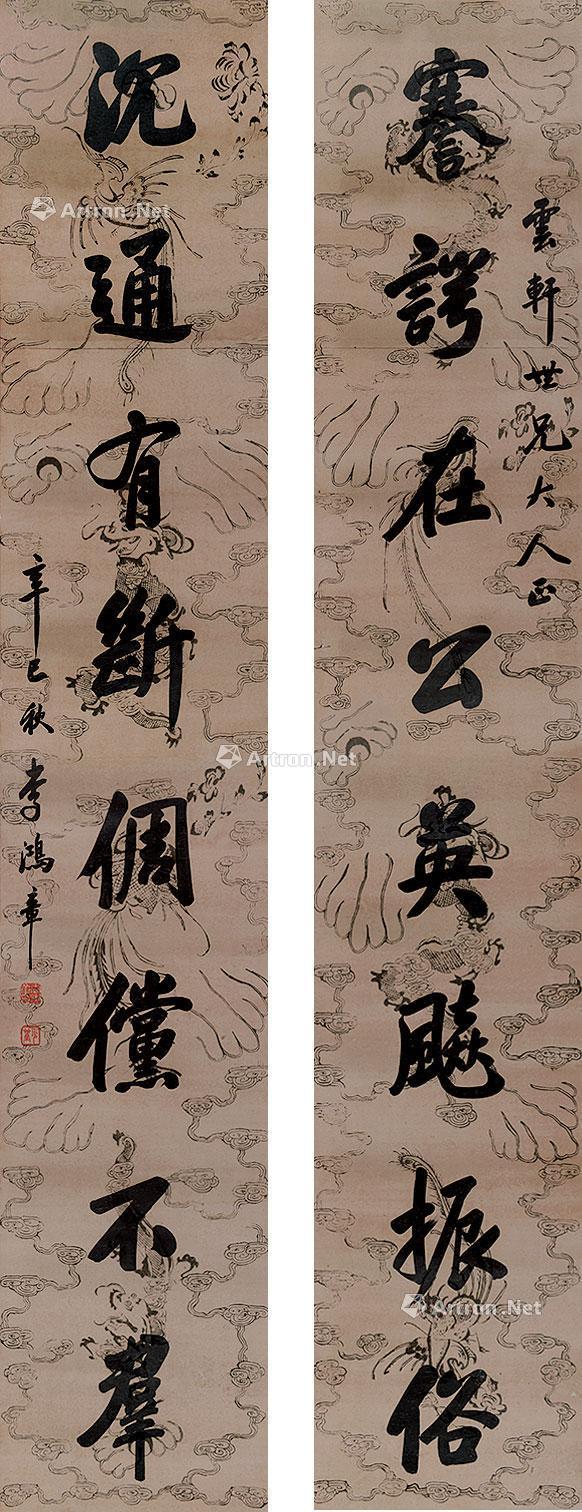 謇諤在公英飈振俗
雲軒世兄大人正
沉通有斷倜儻不羣
辛巳秋 李鴻章
Artron.Net
Artron.Net
Artron.Net